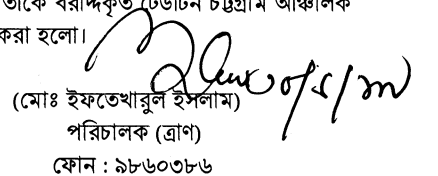 তাকে বরাদ্দকৃত ঢেউটিন চট্টগ্রাম আঞ্চলিক
করা হলো।
(মোঃ ইফতেখারুল ইসলাম)
পরিচালক (ত্রাণ)
ফোন : ৯৮৬০৩৮৬